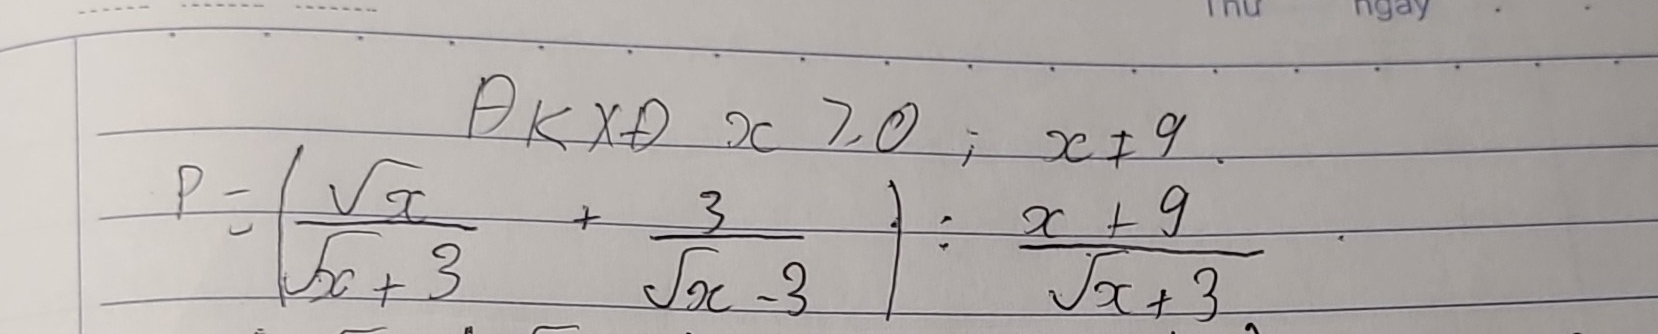 Thứ ngày
ĐKXĐ x ⩾ 0 ; x ≠ 9.
P = (√x / (√x + 3) + 3 / (√x - 3)) : (x + 9) / (√x + 3)